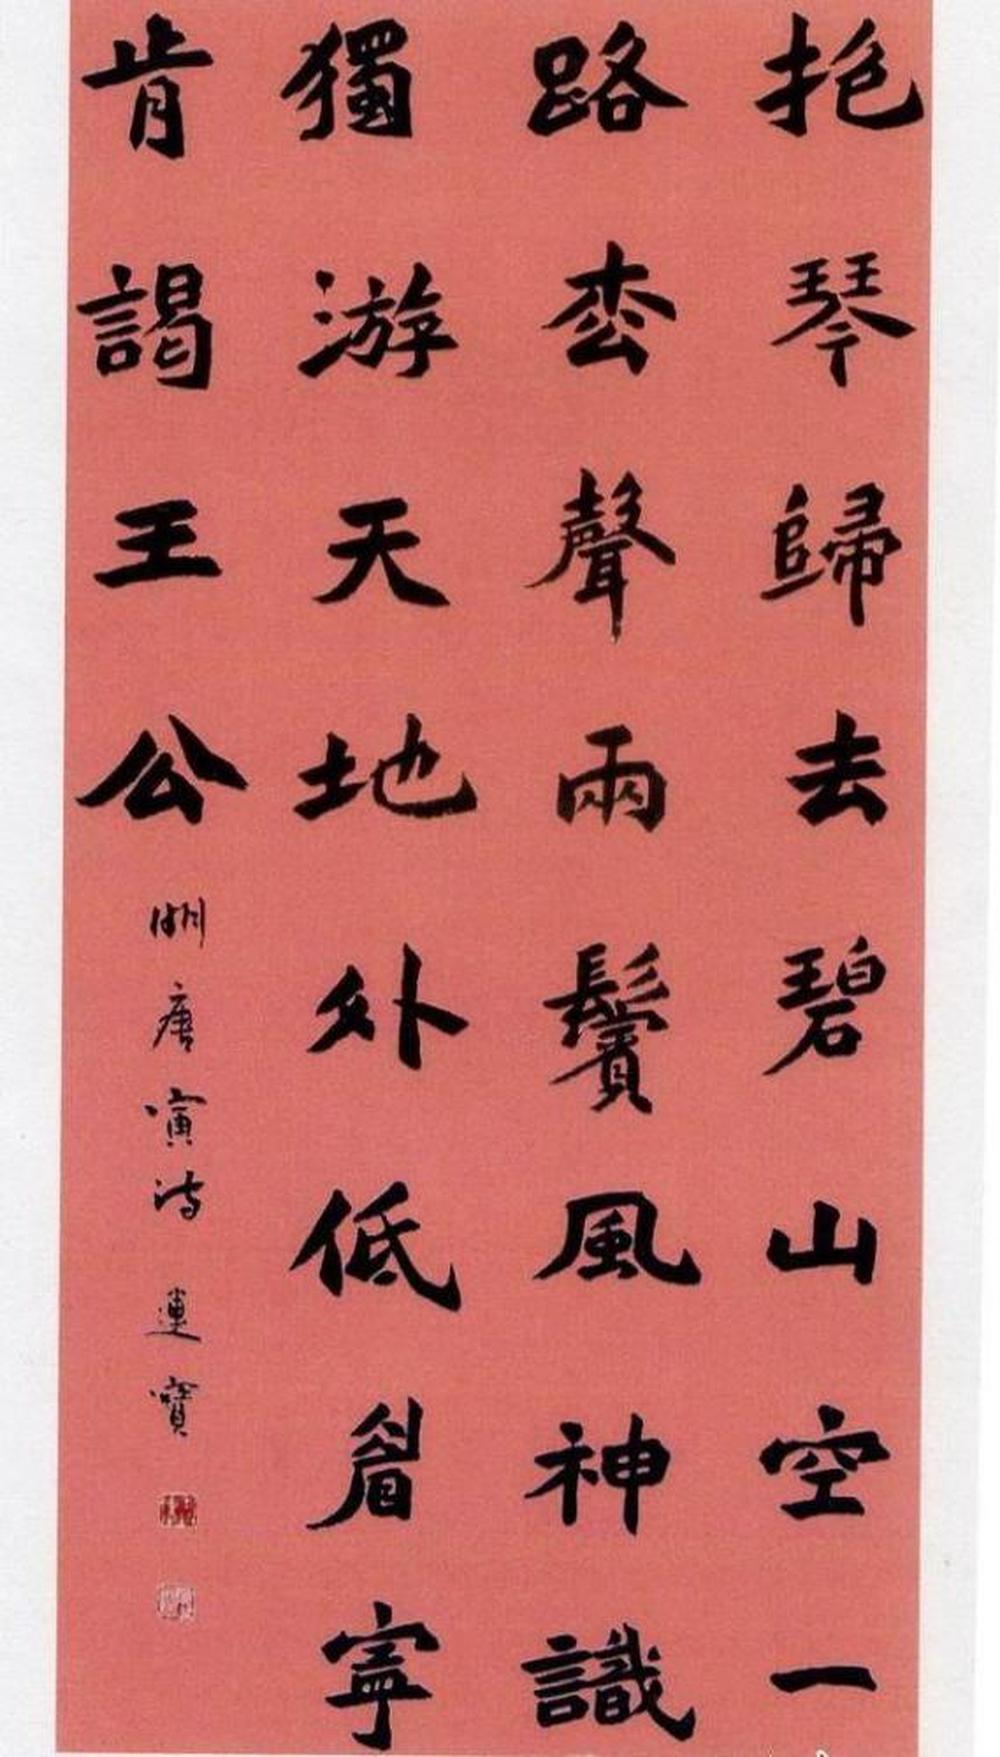 抱琴歸去碧山空一
路枩聲兩鬢風神識
獨游天地外低眉寧
肯謁王公 明唐寅詩 運寶